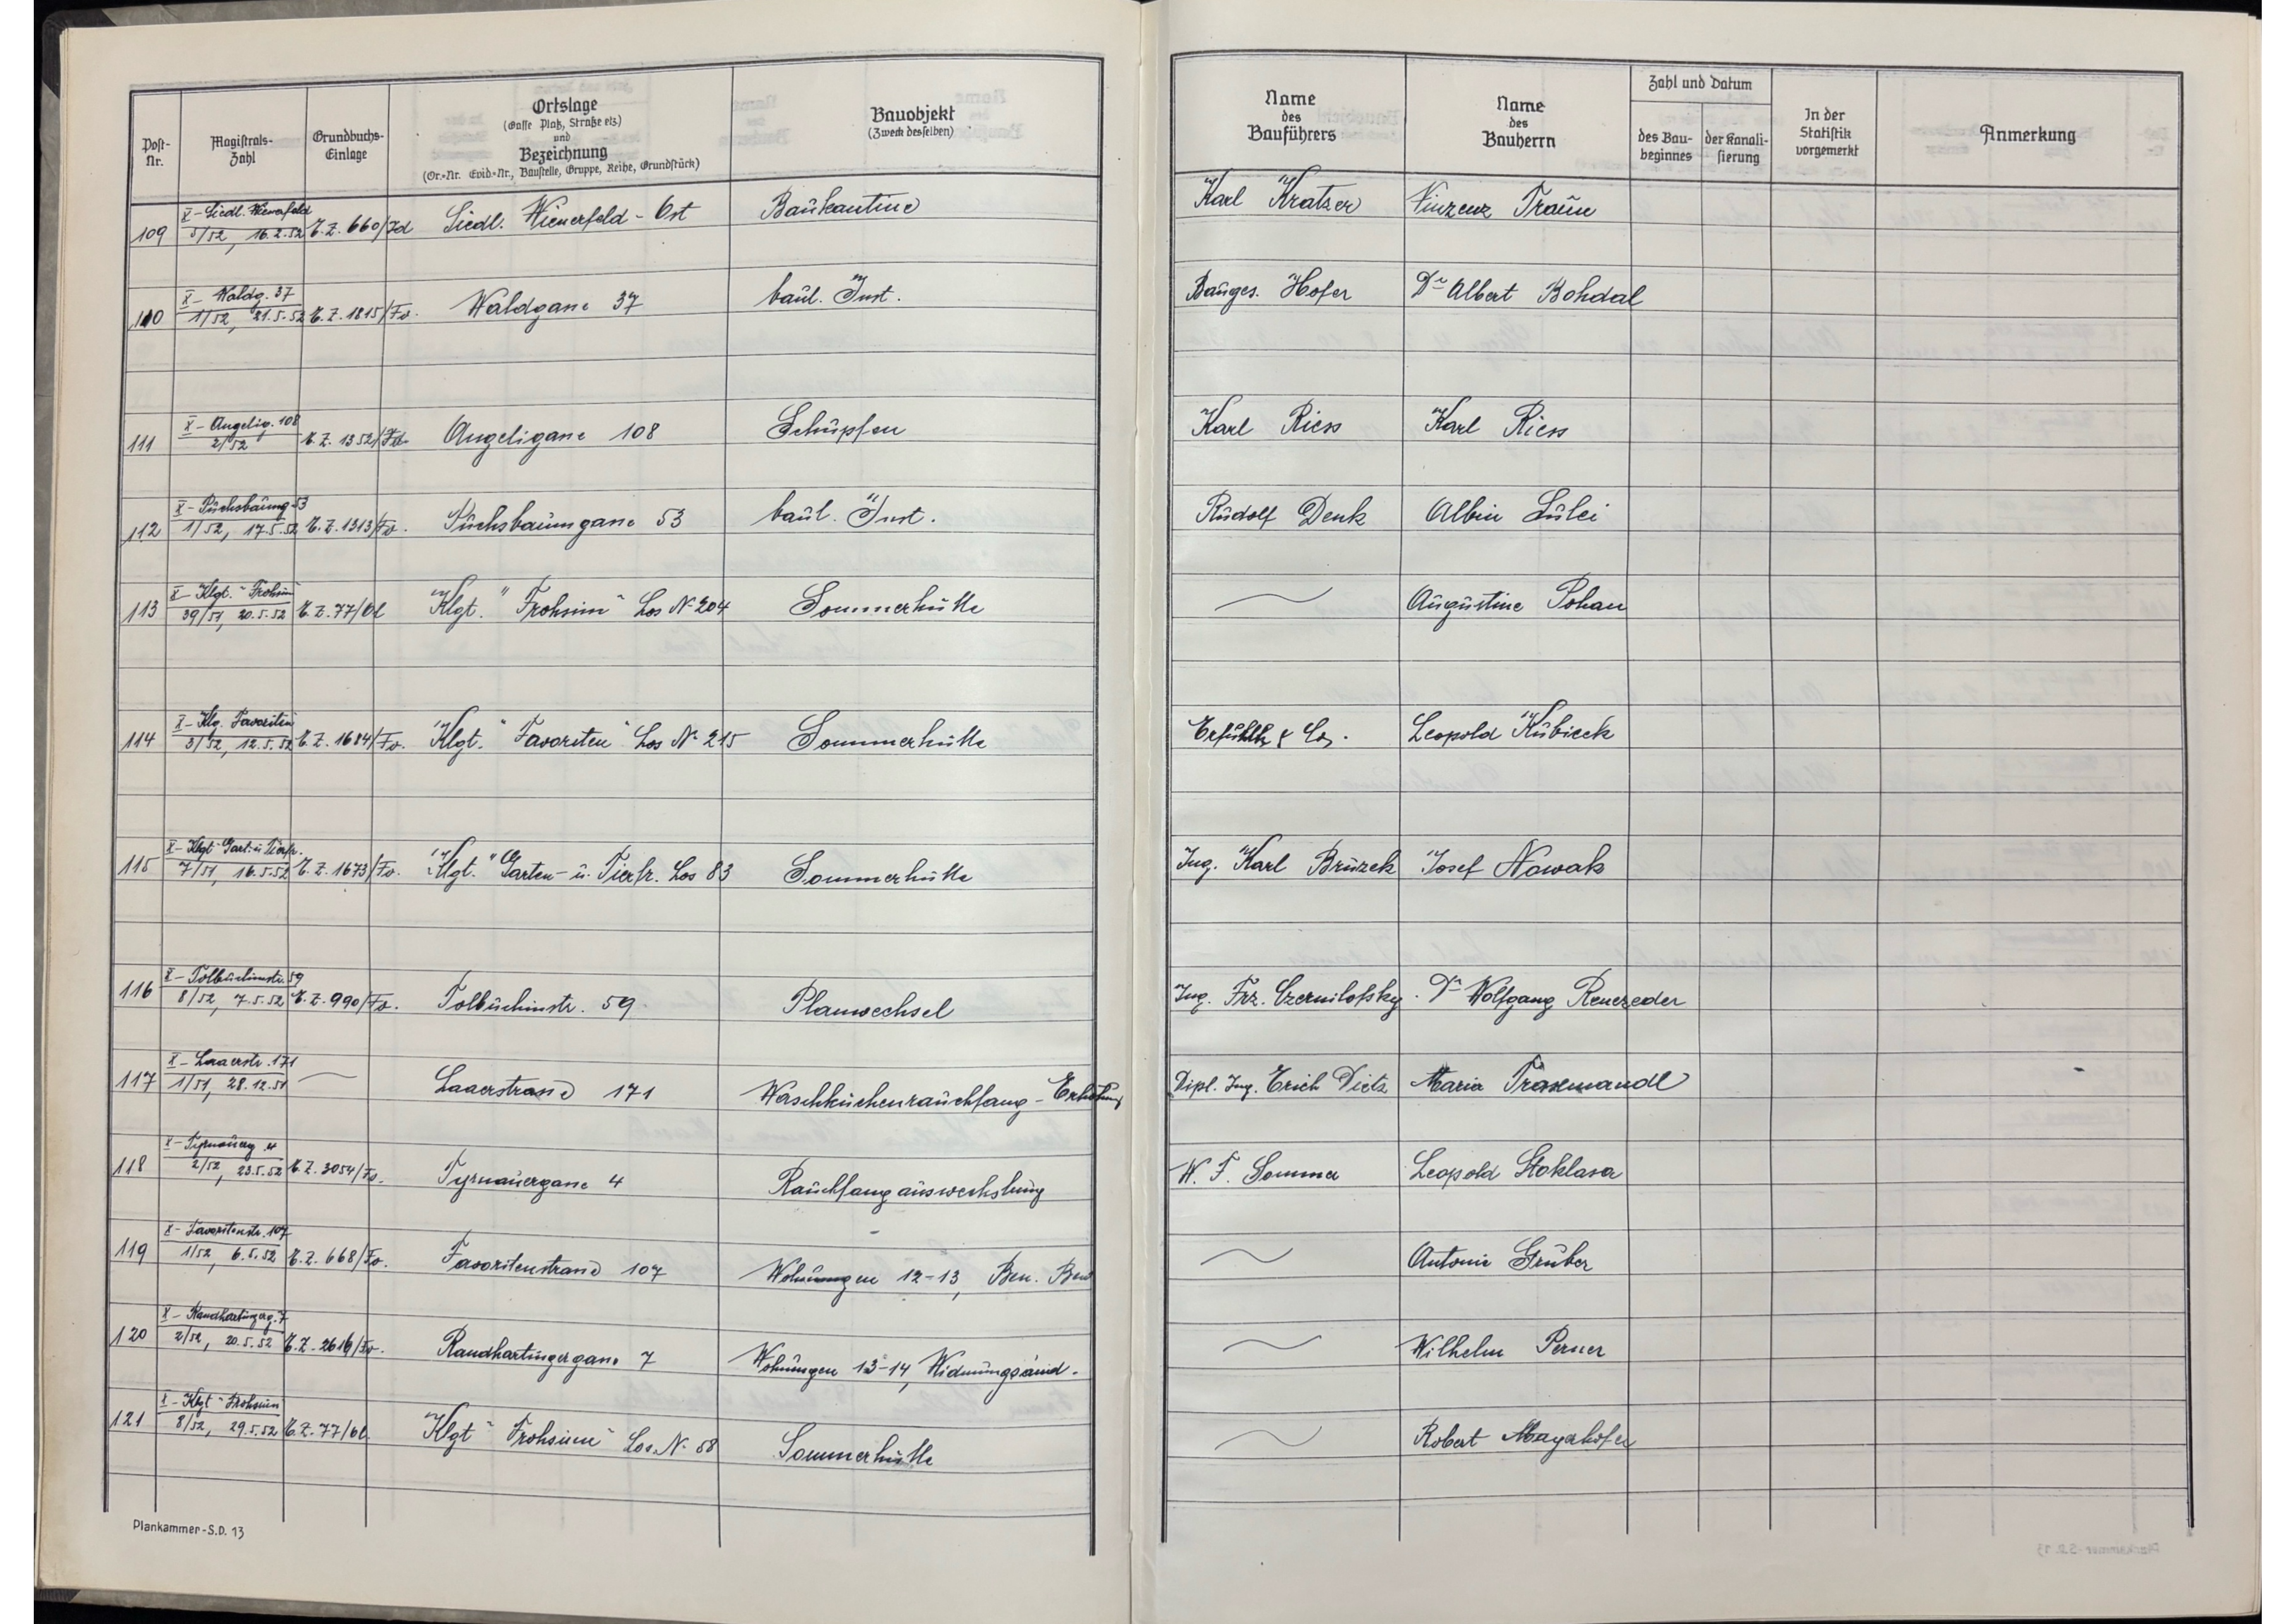 Post-Nr. Magistrals-Zahl Grundbuchs-Einlage Ortslage (Gasse Platz, Straße etz.) und Bezeichnung (Or.-Nr. Evid.-Nr., Baustelle, Gruppe, Reihe, Grundstück) Bauobjekt (Zweck desselben) Name des Bauführers Name des Bauherrn Zahl und Datum des Baubeginnes der Kanalisierung In der Statistik vorgemerkt Anmerkung
X - Siedl. Wienerfeld
109 5/52, 16.2.52 E.Z. 660/Id Siedl. Wienerfeld - Ost Baukantine Karl Kratzer Vinzenz Traun
X - Waldg. 37
110 1/52, 21.5.52 E.Z. 1815/Fv. Waldgasse 37 baul. Inst. Bauges. Hofer Dr Albert Bohdal
X - Angelig. 108
111 2/52 E.Z. 1352/Fv. Angeligasse 108 Schupfen Karl Riess Karl Riess
X - Puchsbaumg. 53
112 1/52, 17.5.52 E.Z. 1313/Fv. Puchsbaumgasse 53 baul. Inst. Rudolf Denk Albin Lulei
X - Klgt. "Frohsinn
113 39/51, 20.5.52 E.Z. 77/Ol Klgt. "Frohsinn" Los Nr 204 Sommerhütte Augustine Pohan
X - Klg. Favoriten
114 3/52, 12.5.52 E.Z. 1684/Fv. Klgt. "Favoriten" Los Nr 215 Sommerhütte & Co. Leopold Kubicek
X - Klgt. "Gart. u. Tierfr.
115 7/51, 16.5.52 E.Z. 1673/Fv. Klgt. "Garten- u. Tierfr. Los 83 Sommerhütte Ing. Karl Bruzek Josef Nowak
X - Tolbuchinstr. 59
116 8/52, 7.5.52 E.Z. 990/Fv. Tolbuchinstr. 59 Planwechsel Ing. Frz. Czernilofsky. Dr Wolfgang Renezeder
X - Laaerstr. 171
117 1/51, 28.12.51 Laaerstrasse 171 Waschküchenrauchfang - Erhöhung Dipl. Ing. Erich Dietz Maria Trasemandl
X - Tyrnauerg. 4
118 2/52, 23.5.52 E.Z. 3054/Fv. Tyrnauergasse 4 Rauchfangauswechslung W. F. Sommer Leopold Stoklasa
X - Favoritenstr. 107
119 1/52, 6.5.52 E.Z. 668/Fv. Favoritenstrasse 107 Wohnungen 12-13, Ben. Bew Antonie Gruber
X - Randhartingerg. 7
120 2/52, 20.5.52 E.Z. 2616/Fv. Randhartingergasse 7 Wohnungen 13-14, Widmungsänd. Wilhelm Perner
X - Klgt "Frohsinn
121 8/52, 29.5.52 E.Z. 77/Ol. Klgt "Frohsinn" Los. Nr 58 Sommerhütte Robert Mayerhofer
Plankammer-S.D. 13